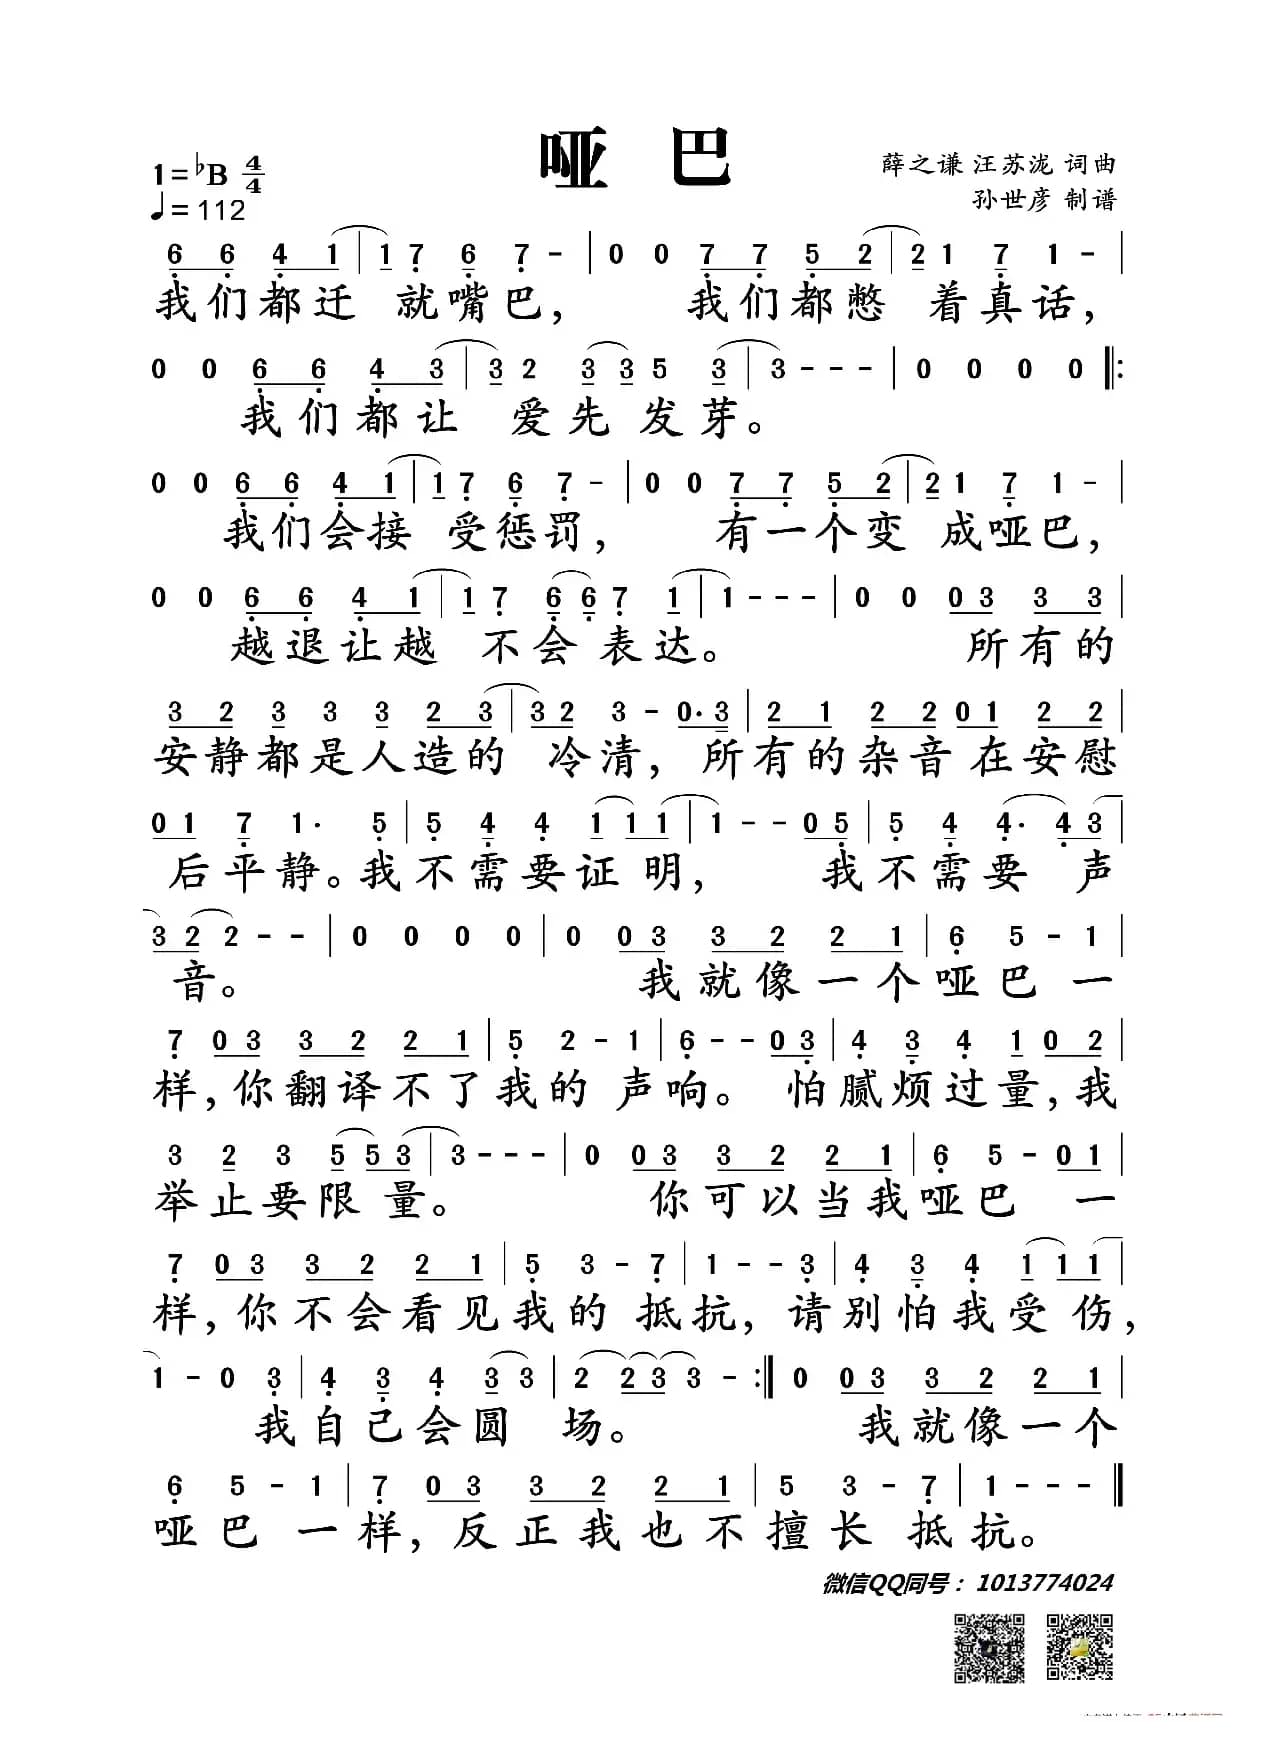 哑 巴
1=♭B 4/4
薛之谦 汪苏泷 词曲
♩=112
孙世彦 制谱
6 6 4 1 | 1 7 6 7 - | 0 0 7 7 5 2 | 2 1 7 1 - |
我们都迁 就嘴巴, 我们都憋 着真话,
0 0 6 6 4 3 | 3 2 3 3 5 3 | 3 - - - | 0 0 0 0 ‖:
我们都让 爱先 发芽。
0 0 6 6 4 1 | 1 7 6 7 - | 0 0 7 7 5 2 | 2 1 7 1 - |
我们会接 受惩罚, 有一个变 成哑巴,
0 0 6 6 4 1 | 1 7 6 6 7 1 | 1 - - - | 0 0 0 3 3 3 |
越退让越 不会 表达。 所有的
3 2 3 3 3 2 3 | 3 2 3 - 0· 3 | 2 1 2 2 0 1 2 2 |
安静都是人造的 冷清, 所有的杂音在安慰
0 1 7 1· 5 | 5 4 4 1 1 1 | 1 - - 0 5 | 5 4 4· 4 3 |
后平静。我不需要证 明, 我不需要 声
3 2 2 - - | 0 0 0 0 | 0 0 3 3 2 2 1 | 6 5 - 1 |
音。 我就像一个哑巴 一
7 0 3 3 2 2 1 | 5 2 - 1 | 6 - - 0 3 | 4 3 4 1 0 2 |
样,你翻译不了我的 声响。 怕腻烦过量,我
3 2 3 5 5 3 | 3 - - - | 0 0 3 3 2 2 1 | 6 5 - 0 1 |
举止要限 量。 你可以当我哑巴 一
7 0 3 3 2 2 1 | 5 3 - 7 | 1 - - 3 | 4 3 4 1 1 1 |
样,你不会看见我的 抵抗, 请别怕我受 伤,
1 - 0 3 | 4 3 4 3 3 | 2 2 3 3 - :‖ 0 0 3 3 2 2 1 |
我自己会圆 场。 我就像一个
6 5 - 1 | 7 0 3 3 2 2 1 | 5 3 - 7 | 1 - - - ‖
哑巴 一样,反正我也不擅长 抵抗。
微信QQ同号：1013774024